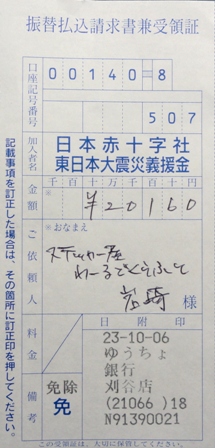 振替払込請求書兼受領証
口座記号番号
00140-8
507
加入者名
日本赤十字社
東日本大震災義援金
金額
千百十万千百十円
※
¥20160
※おなまえ
ご依頼人
ステッカー屋
わーるどくらふと
岩崎 様
料金
日附印
23-10-06
ゆうちょ
銀行
刈谷店
(21066)18
N91390021
備考
免除
免
記載事項を訂正した場合は、その箇所に訂正印を押してください。
この受領証は、大切に保管してください。